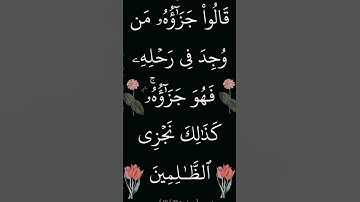 قَالُوا۟ جَزَٰٓؤُهُۥ مَن
وُجِدَ فِى رَحْلِهِۦ
فَهُوَ جَزَٰٓؤُهُۥ ۚ
كَذَٰلِكَ نَجْزِى
ٱلظَّٰلِمِينَ